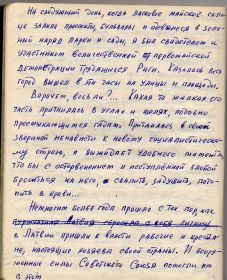 На следующий день, когда ласковое майское солн-
це залило проспекты, бульвары и одевшиеся в зеле-
ный наряд парки и сады, я был свидетелем и
участником величественной первомайской
демонстрации трудящихся Риги. Казалось весь
город вышел в эти часы на улицы и площади.
Впрочем, весь ли?... Какая то жалкая его
часть притаилась в углах и щелях, подобно
пресмыкающимся гадам. Притаилась в своей
звериной ненависти к новому социалистичес-
кому строю, и выжидает удобного момента,
что бы с остервенением и исступленной злобой
броситься на него, свалить, задушить, пото-
пить в крови...
Немногим более года прошло с тех пор как
в Латвии пришли к власти рабочие и крестья-
не, настоящие хозяева своей страны. И воору-
женные силы Советского Союза помогли им
в этом